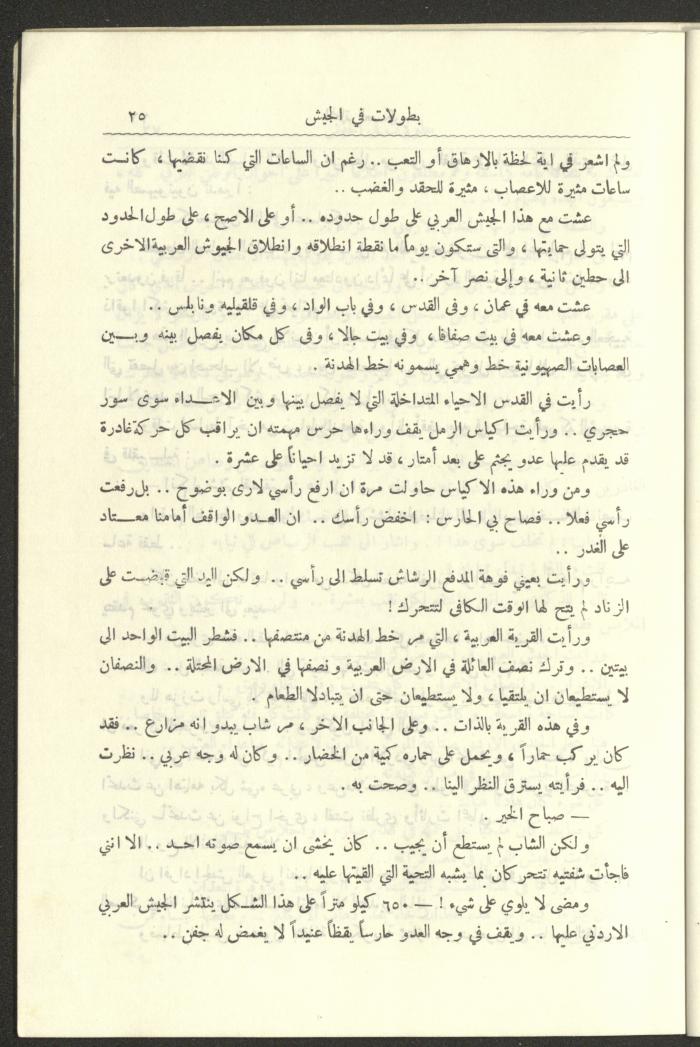 بطولات في الجيش ٢٥
ولم اشعر في اية لحظة بالارهاق أو التعب .. رغم ان الساعات التي كنا نقضيها ، كانت
ساعات مثيرة للاعصاب ، مثيرة للحقد والغضب ..
عشت مع هذا الجيش العربي على طول حدوده .. أو على الاصح ، على طول الحدود
التي يتولى حمايتها ، والتى ستكون يوماً ما نقطة انطلاقه وانطلاق الجيوش العربية الاخرى
الى حطين ثانية ، وإلى نصر آخر ..
عشت معه في عمان ، وفى القدس ، وفي باب الواد ، وفي قلقيليه ونابلس ..
وعشت معه في بيت صفافا ، وفي بيت جالا ، وفى كل مكان يفصل بينه وبين
العصابات الصهيونية خط وهمي يسمونه خط الهدنة .
رأيت في القدس الاحياء المتداخلة التي لا يفصل بينها وبين الاعداء سوى سور
حجري .. ورأيت اكياس الرمل يقف وراءها حرس مهمته ان يراقب كل حركة غادرة
قد يقدم عليها عدو يجثم على بعد أمتار ، قد لا تزيد احياناً على عشرة .
ومن وراء هذه الاكياس حاولت مرة ان ارفع رأسي لارى بوضوح .. بل رفعت
رأسي فعلا .. فصاح بي الحارس : اخفض رأسك .. ان العدو الواقف أمامنا معتاد
على الغدر ..
ورأيت بعيني فوهة المدفع الرشاش تسلط الى رأسي .. ولكن اليد التي قبضت على
الزناد لم يتح لها الوقت الكافى لتتحرك !
ورأيت القرية العربية ، التي مر خط الهدنة من منتصفها .. فشطر البيت الواحد الى
بيتين .. وترك نصف العائلة في الارض العربية ونصفها في الارض المحتلة .. والنصفان
لا يستطيعان ان يلتقيا ، ولا يستطيعان حتى ان يتبادلا الطعام .
وفي هذه القرية بالذات .. وعلى الجانب الاخر ، مر شاب يبدو انه مزارع .. فقد
كان يركب حماراً ، ويحمل على حماره كمية من الخضار .. وكان له وجه عربي .. نظرت
اليه .. فرأيته يسترق النظر الينا .. وصحت به .
— صباح الخير .
ولكن الشاب لم يستطع أن يجيب .. كان يخشى ان يسمع صوته احد .. الا انني
فاجأت شفتيه تتحركان بما يشبه التحية التي القيتها عليه ..
ومضى لا يلوي على شيء ! — ٦٥٠ كيلو متراً على هذا الشكل ينتشر الجيش العربي
الاردني عليها .. ويقف في وجه العدو حارساً يقظاً عنيداً لا يغمض له جفن ..